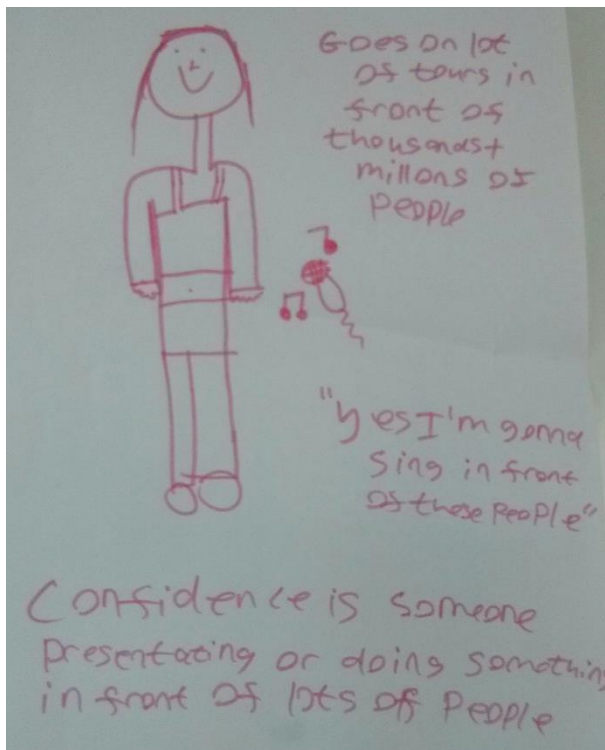 Goes on lot
of tours in
front of
thousands+
millons of
people
"yes I'm gonna
sing in front
of these people"
Confidence is someone
presentating or doing somethin
in front of lots of people